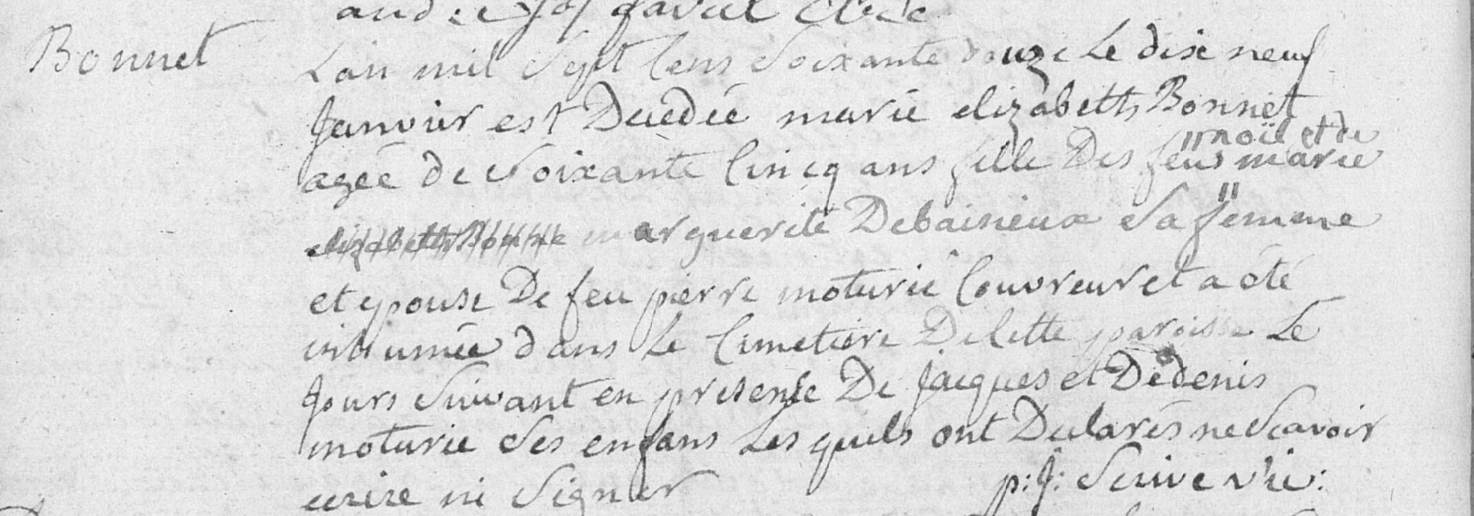 Bonnet
Lan mil Sept Cens Soixante douze Le dix neuf
Janvier est Decedée marie elizabeth Bonnet
noël et de
agée de Soixante Cincq ans fille Des feus marie
elizabeth Bonnet marguerite Debainieux Sa femme
et epouse De feu pierre moturie Couvreur et a été
inhumée dans Le Cimetiere De Cette paroisse Le
Jours Suivant en presence De Jacques et De denis
moturie Ses enfans Les quels ont Declarés ne Scavoir
ecrire ni Signer p: J: Scrive vic: